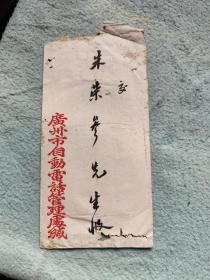 交
朱榮參先生收
廣州市自動電話管理處緘